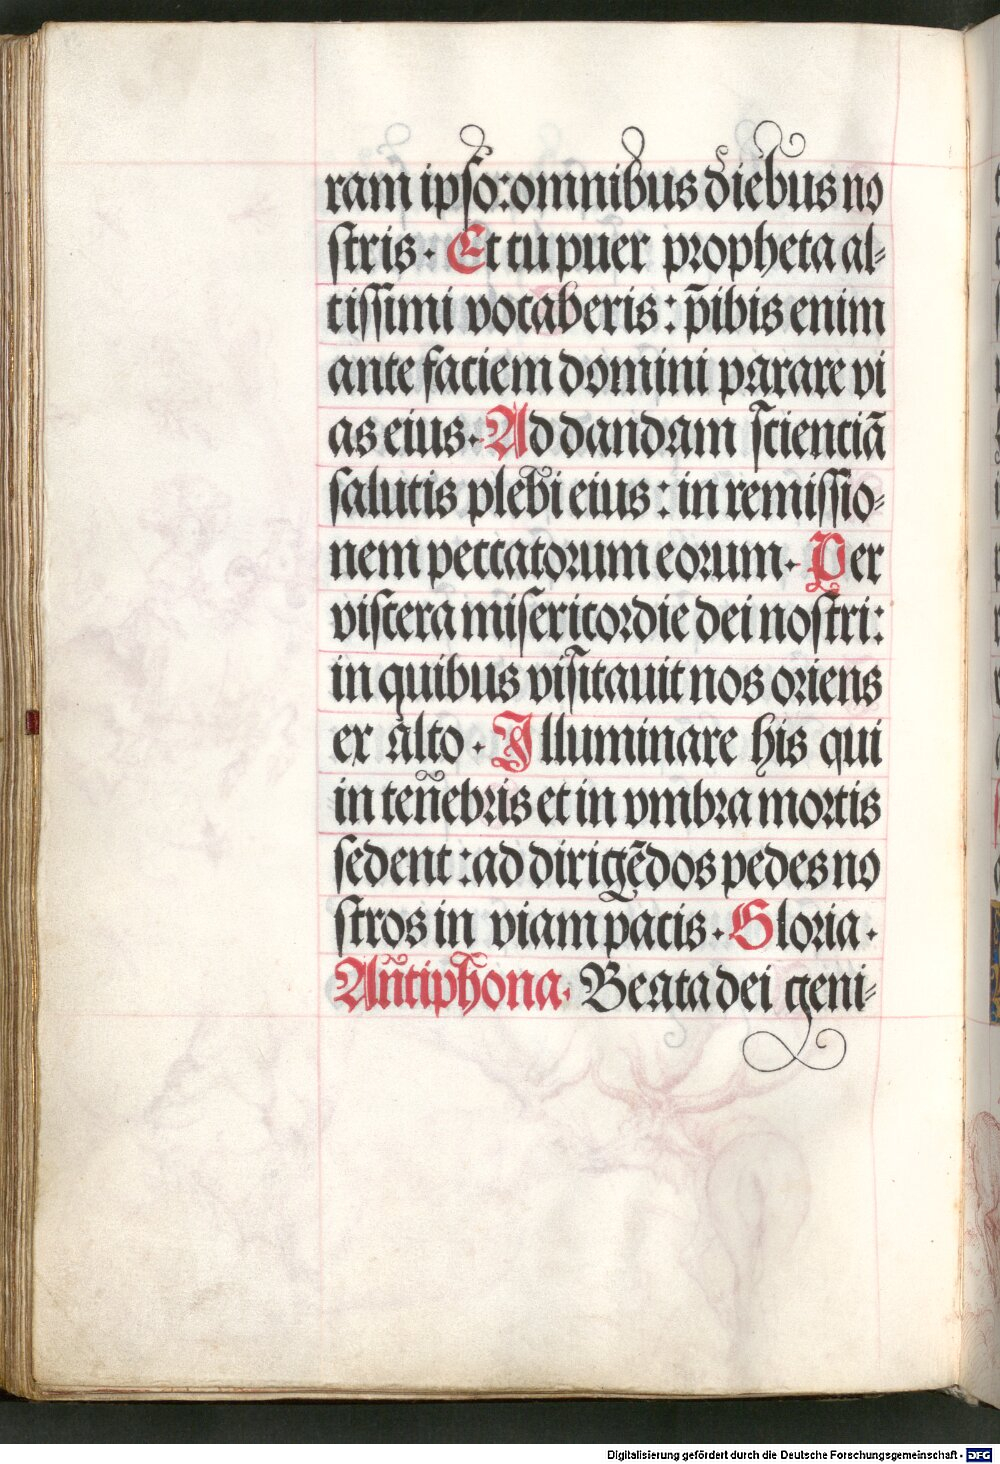 ram ipso: omnibus diebus no
stris. Et tu puer propheta al=
tissimi vocaberis: p̄ibis enim
ante faciem domini parare vi
as eius. Ad dandam scienciā
salutis plebi eius: in remissio=
nem peccatorum eorum. Per
viscera misericordie dei nostri:
in quibus visitauit nos oriens
ex alto. Illuminare his qui
in tenebris et in vmbra mortis
sedent: ad dirigēdos pedes no
stros in viam pacis. Gloria.
Antiphona. Beata dei geni=
Digitalisierung gefördert durch die Deutsche Forschungsgemeinschaft - DFG